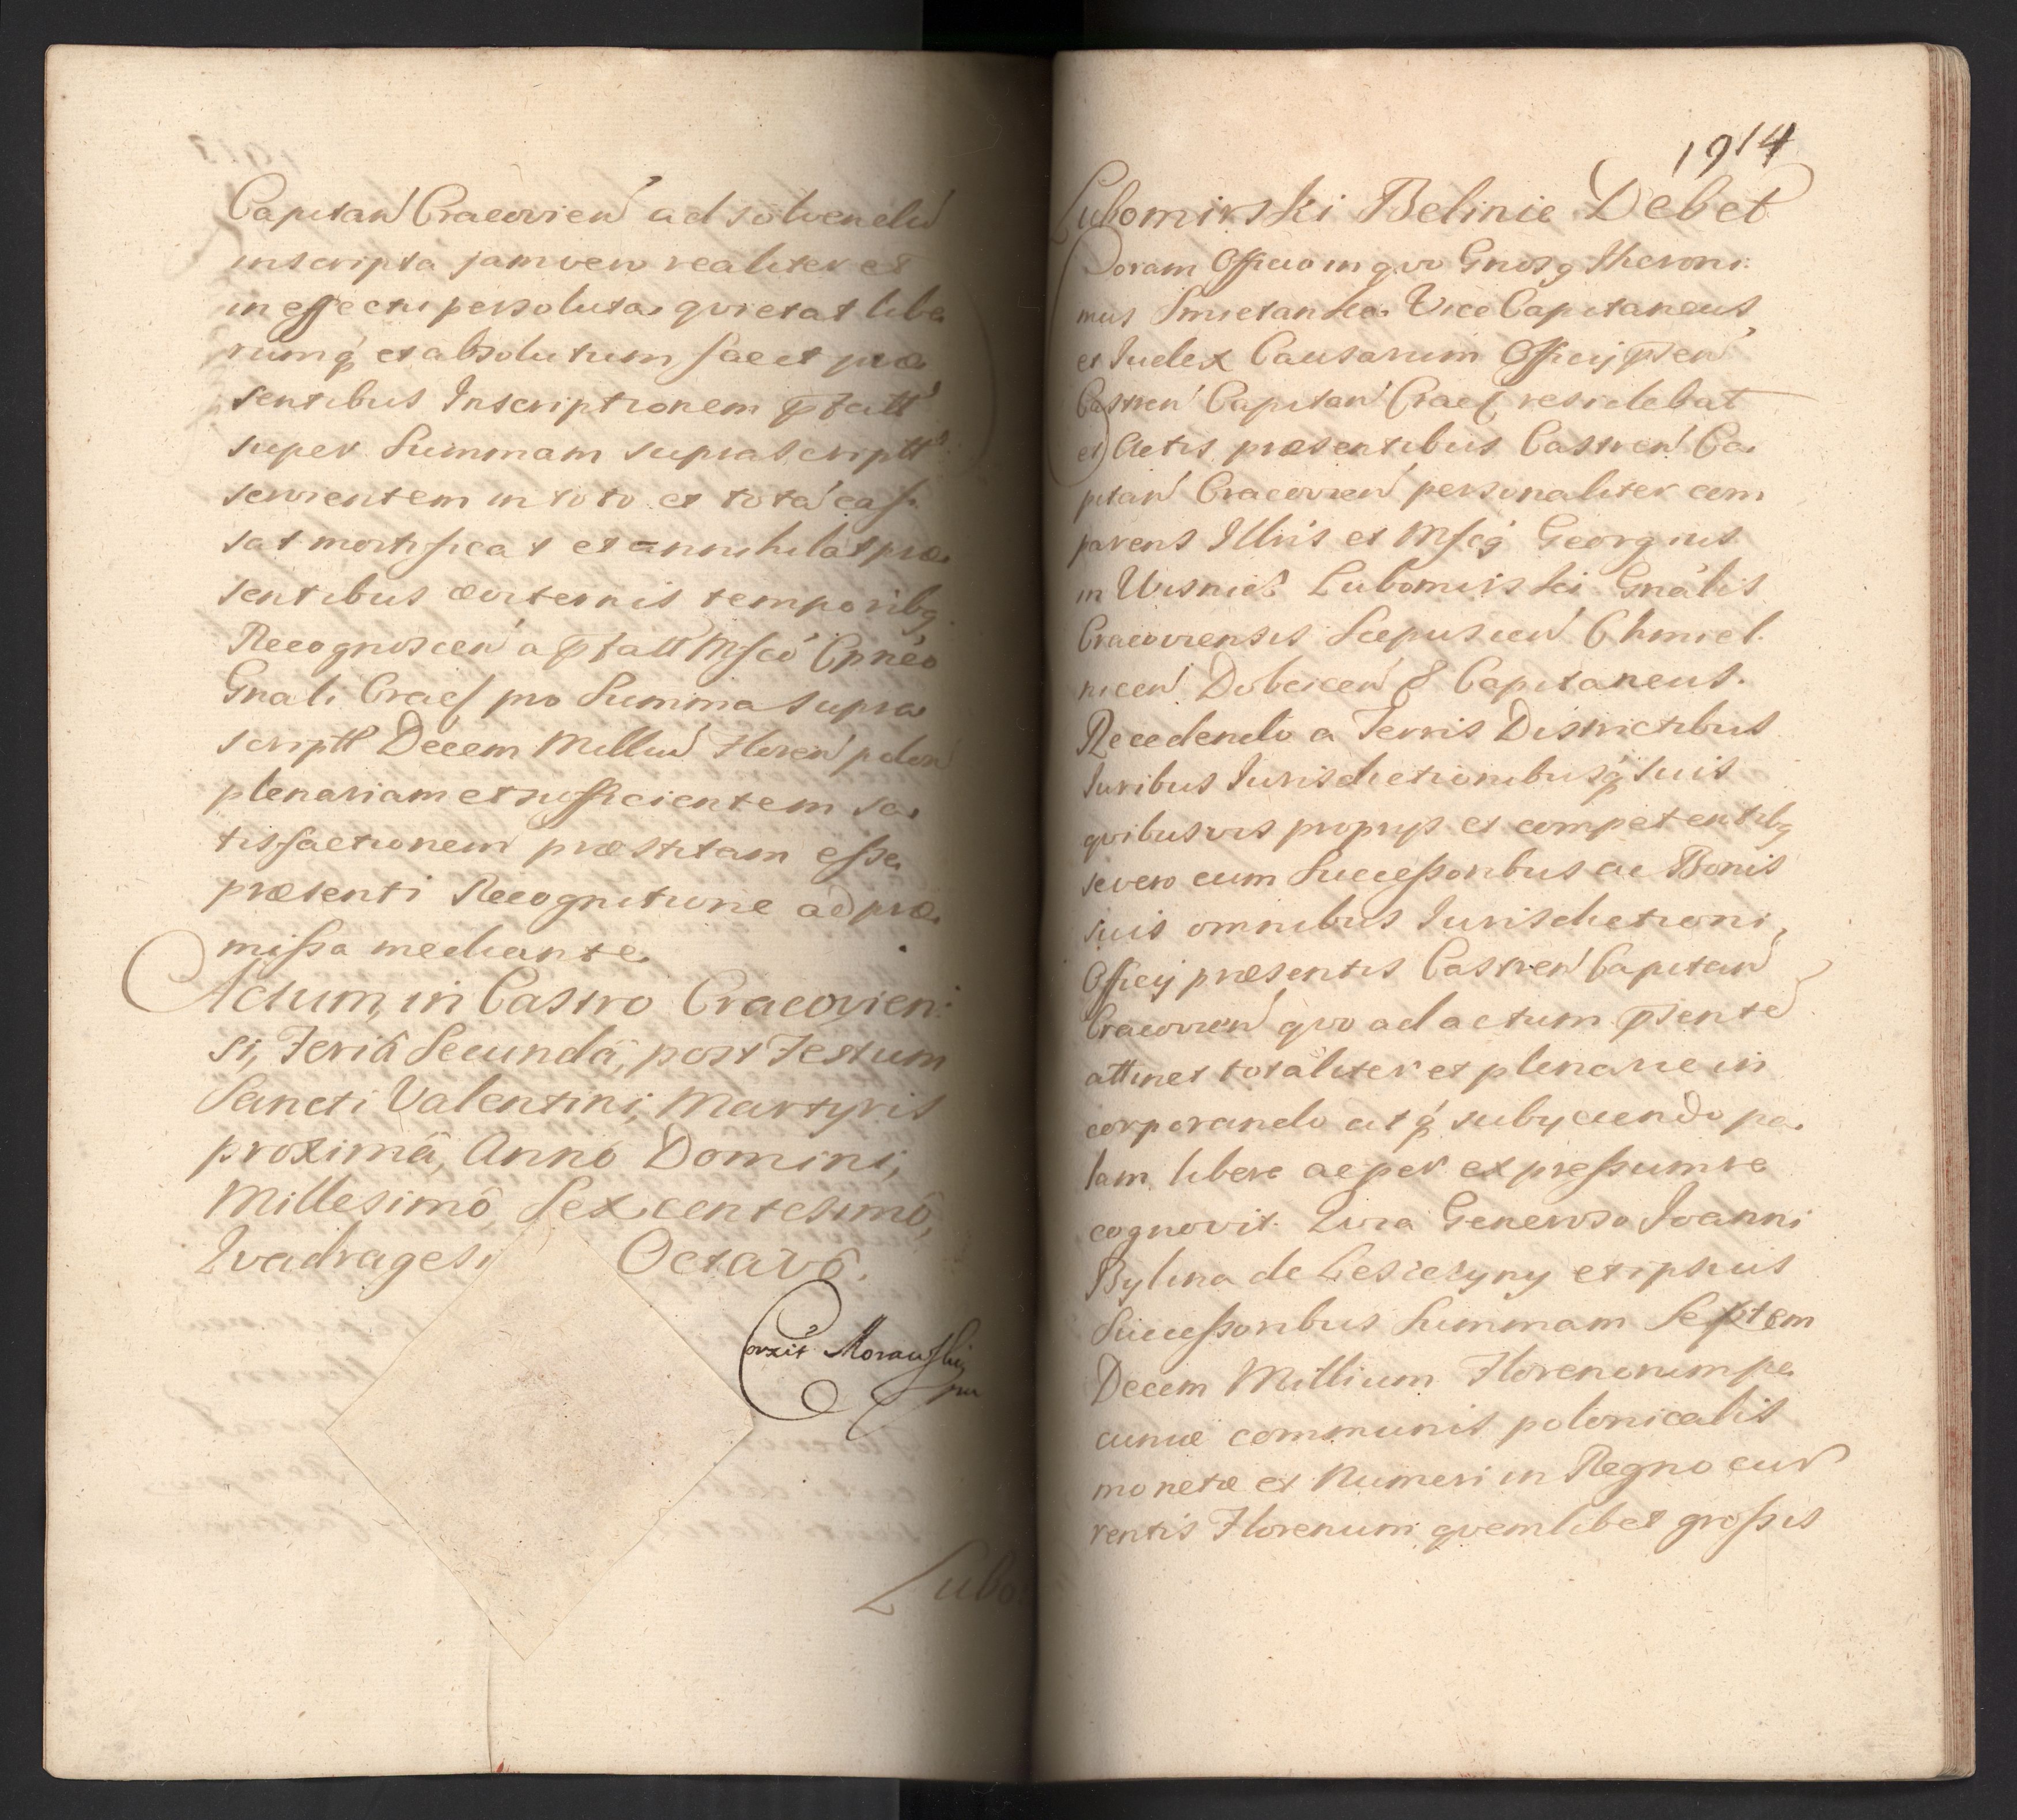 Capitan Cracovien ad solvendu
inscripta jam vero realiter et
in effectu persoluta quietat libe
rumq et absolutum facit præ
sentibus Inscriptionem pfatt
super Summam suprascriptt
servientem in toto et tota cas
sat mortificat et annihilat præ
sentibus æviternis temporibq
Recognoscen a pfatt Mfco Cpneo
Gnali Cracf pro Summa supra
scriptt Decem Milliu Floren polon
plenariam et sufficientem sa
tisfactionem præstitam esse
præsenti Recognitione ad præ
missa mediante.
Actum in Castro Cracovien:
si, Feriâ Secundâ, post Festum
Sancti Valentini, Martyris
proximâ, Annô Domini,
Millesimô Sexcentesimô,
Qvadragesi Octavô.
Corxit Morawski
mp
Lubo:
1914
Lubomirski Belinie Debet
Coram Officio in qvo Gnosq Iheroni:
mus Smietanka Vice Capitaneus
et Iudex Causarum Officij psen
Castren Capitan Cracf residebat
et Actis præsentibus Castren Ca
pitan Cracovien personaliter com
parens Illris et Mfcq Georgius
in Wisnicz Lubomirski Gnalis
Cracoviensis Scepusien Chmiel
nicen Dobcicen & Capitaneus.
Recedendo a Terris Districtibus
Iuribus Iurisdictionibusq suis
qvibusvis proprys et competentibq
se vero cum Successoribus ac Bonis
suis omnibus Iurisdictioni
Officij præsentis Castren Capitan
Cracovien qvo ad actum psente
attinet totaliter et plenarie in
corporando atq subyciendo pa
lam libere ac per expressum re
cognovit. Qvia Generoso Joanni
Bylina de Lesczyny et ipsius
Successoribus Summam Septem
Decem Millium Florenorum pe
cuniæ communis polonicalis
monetæ et Numeri in Regno cur
rentis Florenum qvemlibet grossis